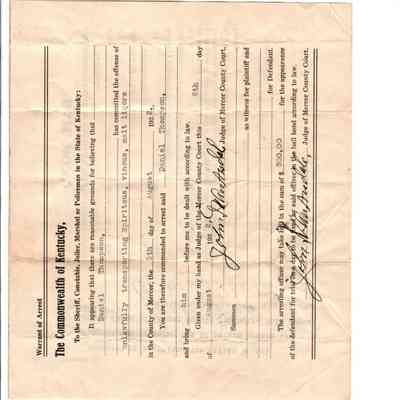 Warrant of Arrest
The Commonwealth of Kentucky,
To the Sheriff, Constable, Jailer, Marshal or Policeman in the State of Kentucky:
It appearing that there are reasonable grounds for believing that
Daniel Thompson,
has committed the offense of
unlawfully transporting Spiritous, vinous, malt
in the County of Mercer, the 5th day of August 192
You are therefore commanded to arrest said Daniel Thompson,
and bring him before me to be dealt with according to law.
Given under my hand as Judge of the Mercer County Court this day
of August 192
Judge of Mercer County Court.
Summon
as witness for plaintiff and
for Defendant.
The arresting officer may take bail in the sum of $ 300.00 for the appearance
of the defendant for trial on a day to be by said officer in the bail bond according to law.
Judge of Mercer County Court.